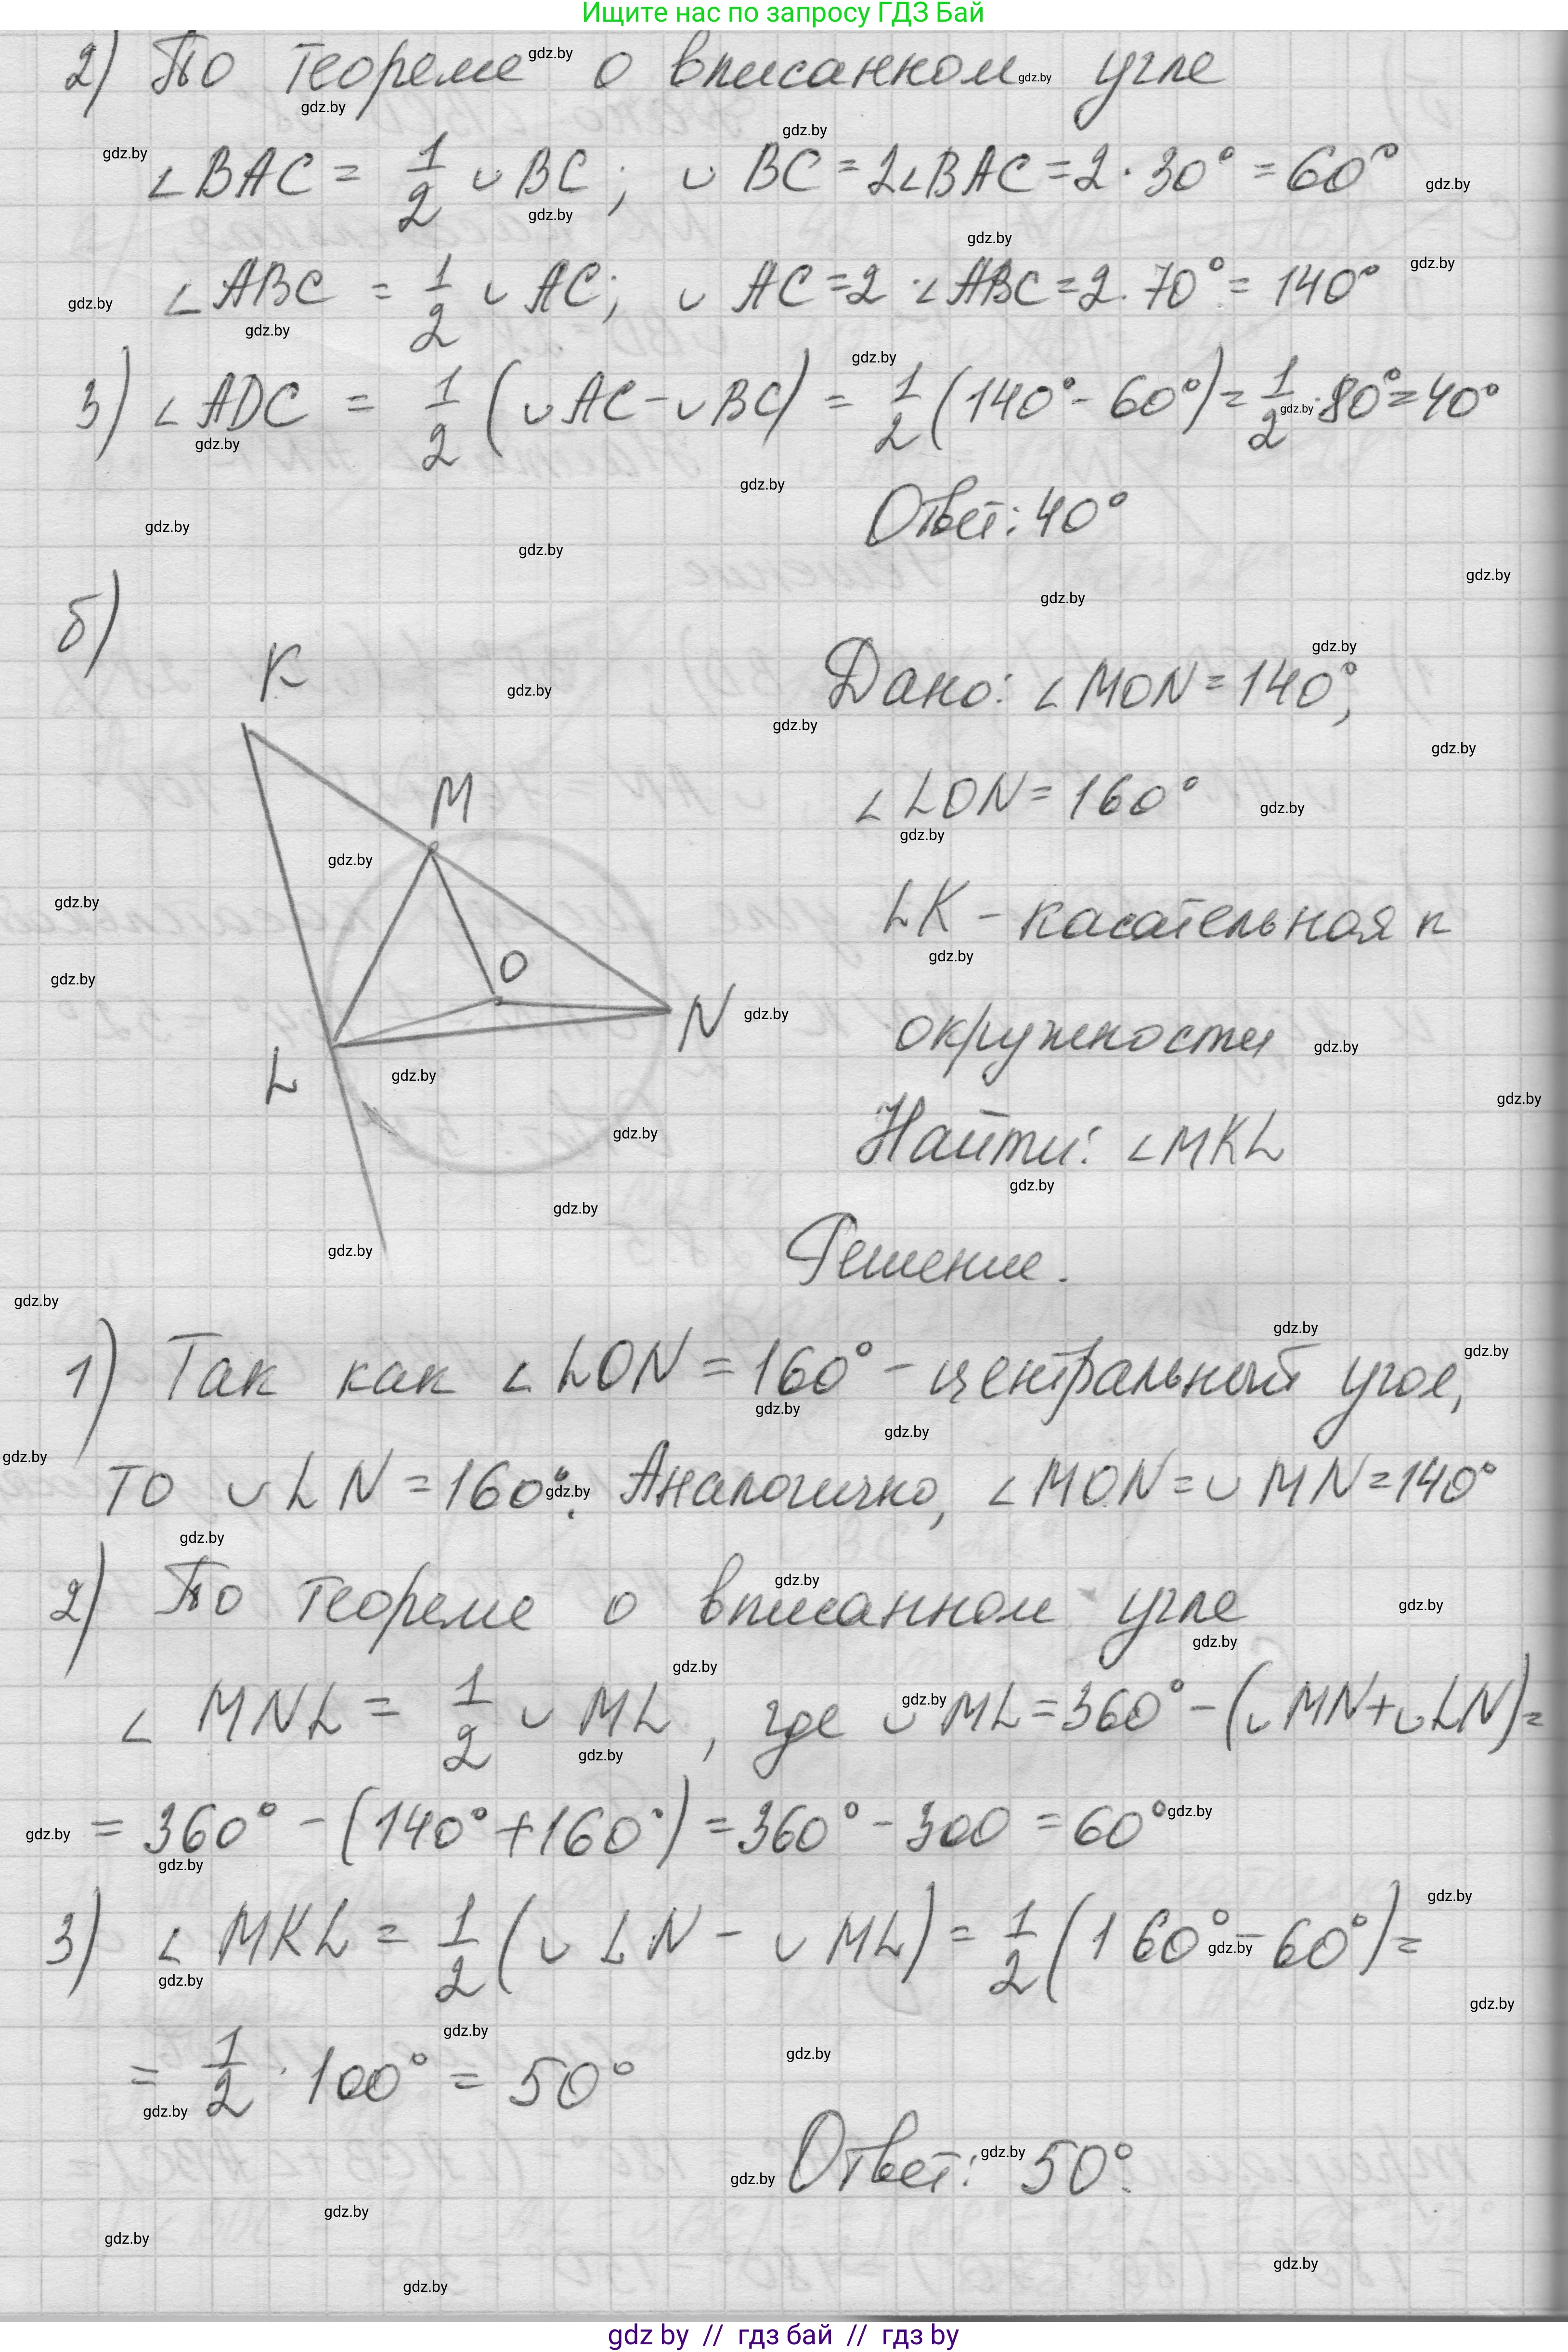 Ищите нас по запросу ГДЗ Бай
2) По теореме о вписанном угле
∠BAC = 1/2 ∪ BC; ∪ BC = 2∠BAC = 2 · 30° = 60°
∠ABC = 1/2 ∪ AC; ∪ AC = 2 · ∠ABC = 2 · 70° = 140°
3) ∠ADC = 1/2 (∪ AC - ∪ BC) = 1/2 (140° - 60°) = 1/2 · 80° = 40°
Ответ: 40°
б)
K
Дано: ∠MON = 140°,
M
∠LON = 160°
LK - касательная к
O
N
окружности
L
Найти: ∠MKL
Решение.
1) Так как ∠LON = 160° - центральный угол,
то ∪ LN = 160°. Аналогично, ∠MON = ∪ MN = 140°
2) По теореме о вписанном угле
∠ MNL = 1/2 ∪ ML, где ∪ ML = 360° - (∪ MN + ∪ LN) =
= 360° - (140° + 160°) = 360° - 300 = 60°
3) ∠ MKL = 1/2 (∪ LN - ∪ ML) = 1/2 (160° - 60°) =
= 1/2 · 100° = 50°
Ответ: 50°.
gdz by // гдз бай // гдз by